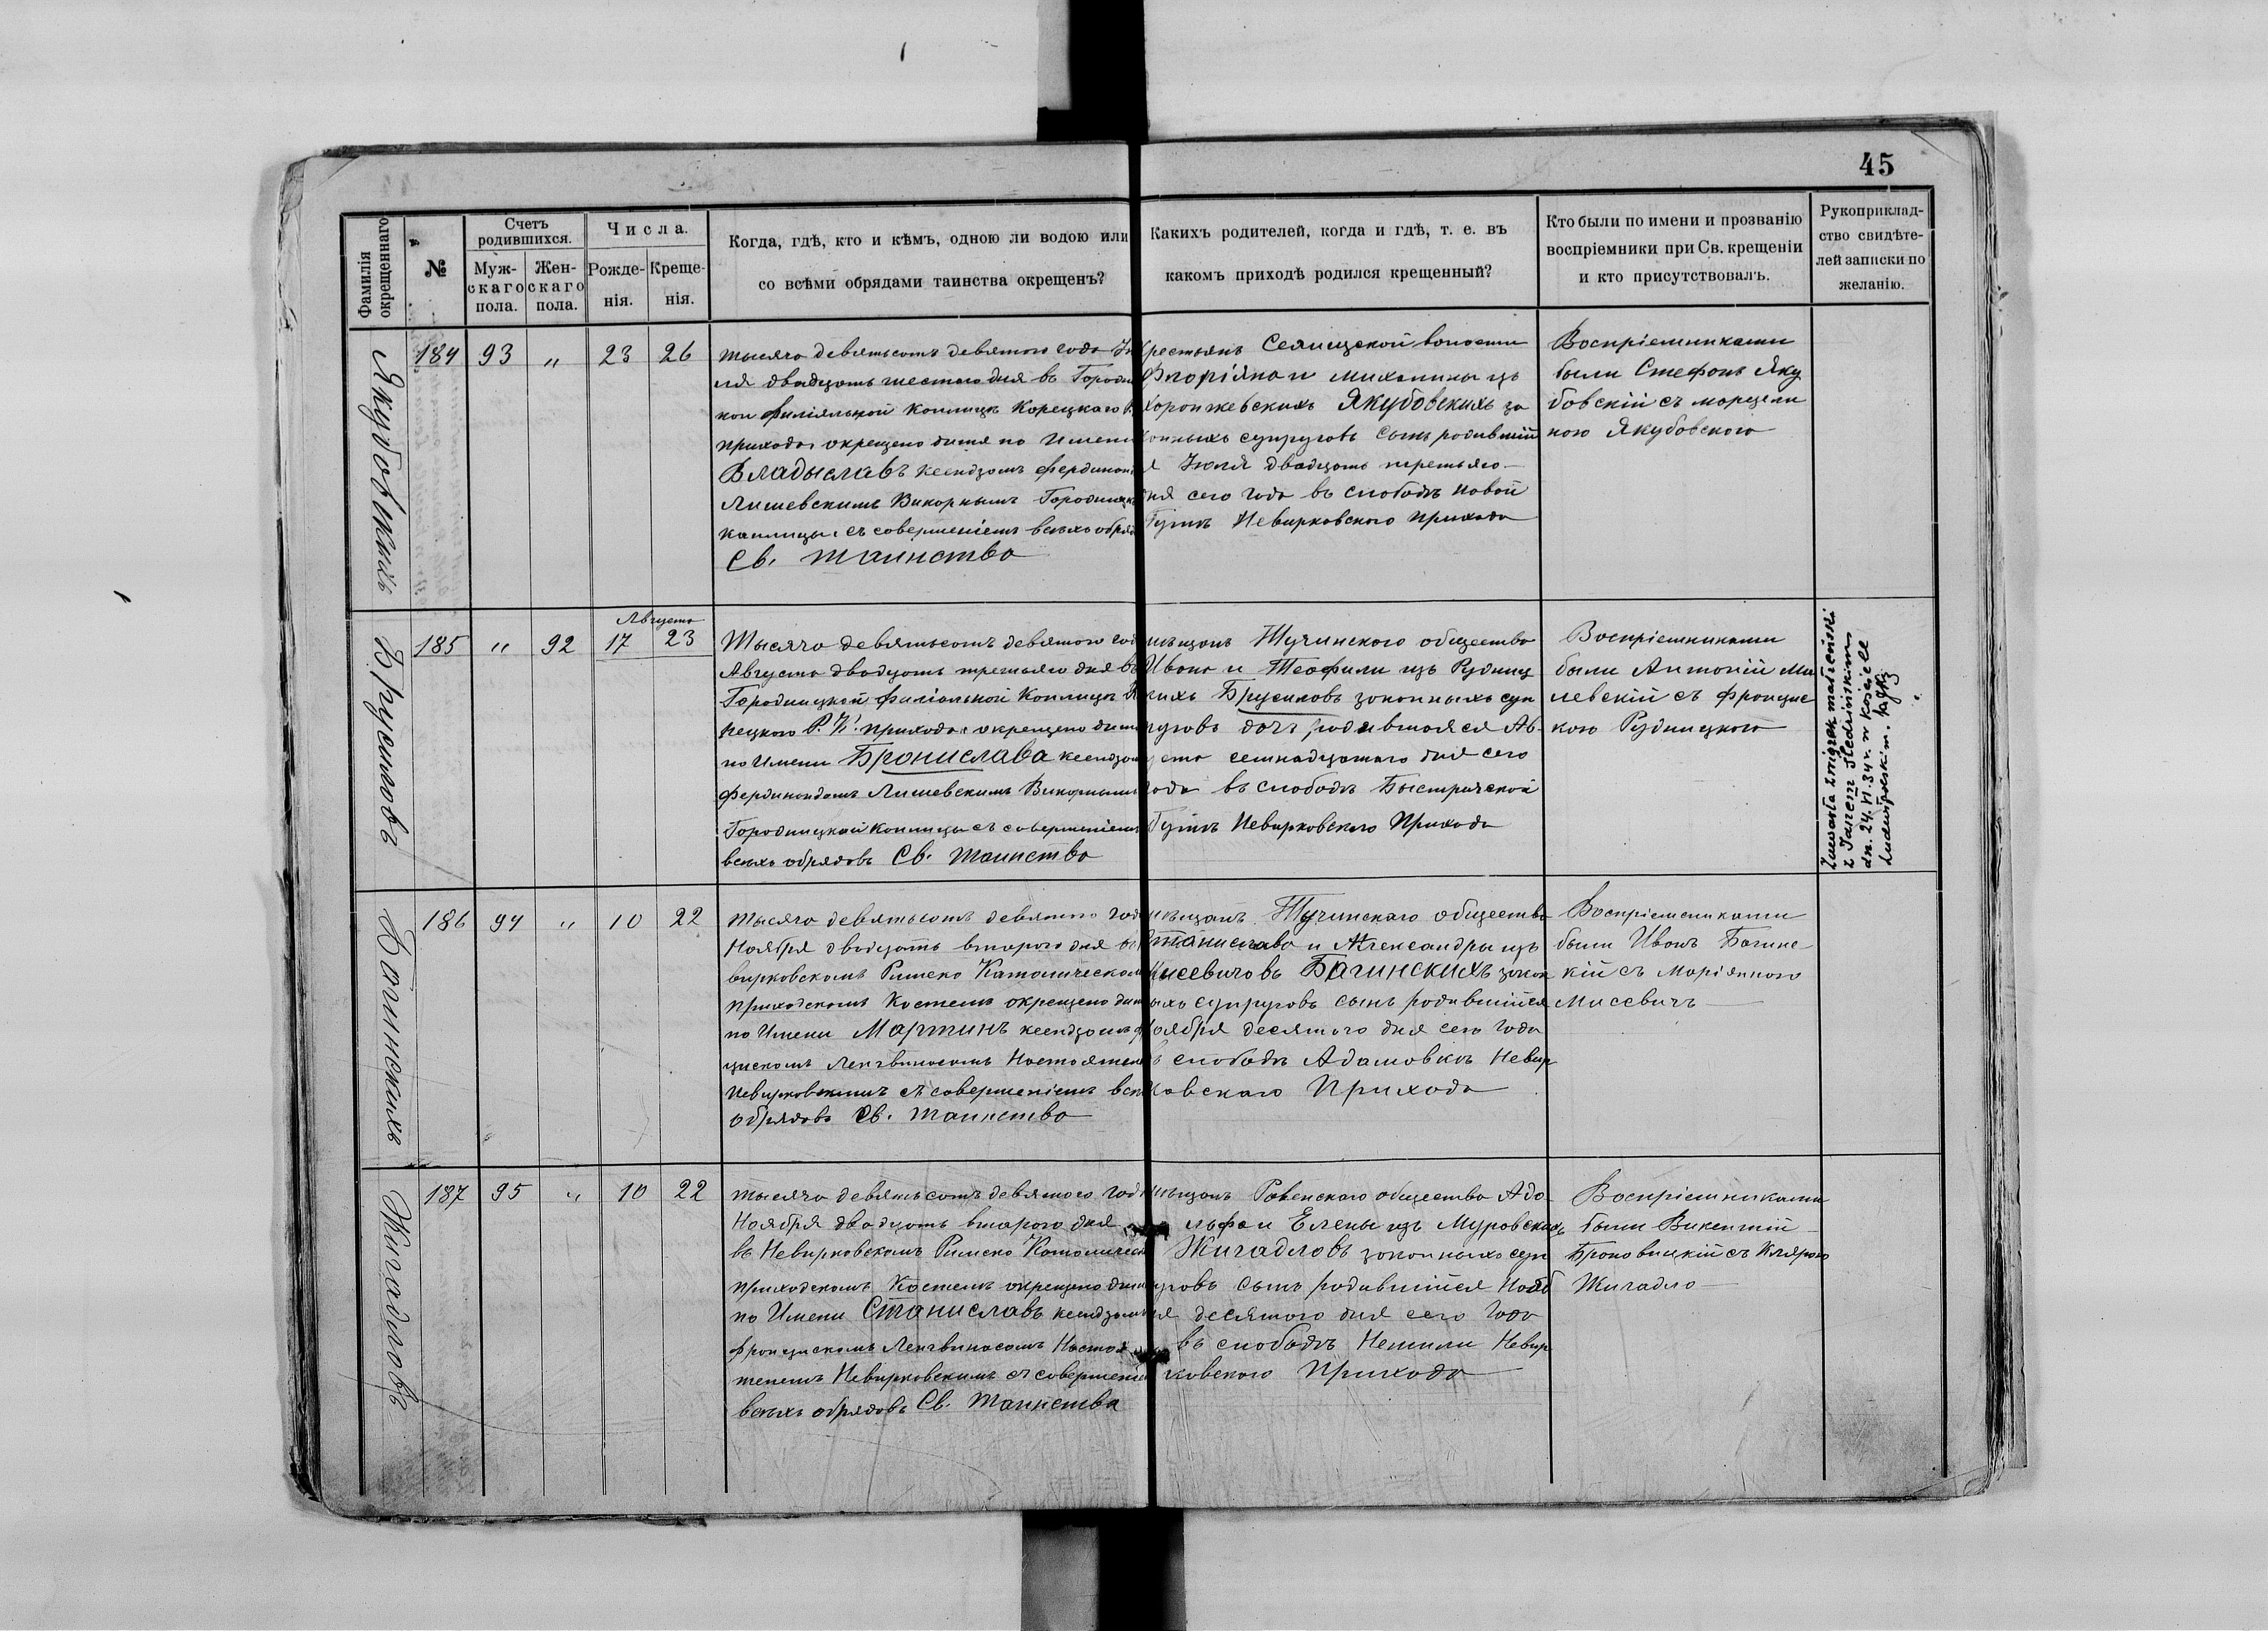 45
Фамилія окрещеннаго
№
Счетъ родившихся.
Муж-
скаго
пола.
Жен-
скаго
пола.
Числа.
Рожде-
нія.
Креще-
нія.
Когда, гдѣ, кто и кѣмъ, одною ли водою или
со всѣми обрядами таинства окрещенъ?
Какихъ родителей, когда и гдѣ, т. е. въ
какомъ приходѣ родился крещенный?
Кто были по имени и прозванію
воспріемники при Св. крещеніи
и кто присутствовалъ.
Рукоприклад-
ство свидѣте-
лей записки по
желанію.
Якубовскихъ
184 93 „ 23 26
тысяча девятьсотъ девятого года
ля двадцать шестого дня въ
кой филіяльной каплицѣ Корецкаго
прихода окрещено дитя по Имени
Владыславъ ксендзомъ
Лишевскимъ Викарнымъ
каплицы съ совершеніемъ всѣхъ
Св. таинства
Селищской волости
Флоріяна и Михалины изъ
Хоронжевскихъ Якубовскихъ за
супруговъ сынъ родившій
Іюля двадцать третьяго
дня сего года въ слободѣ Новой
Гутѣ Невирковского прихода
Воспріемниками
были Стефанъ Яку
бовскій съ Марцели
ною Якубовского
Брусиловъ
185 „ 92 17 23
Августа
Тысяча девятьсотъ девятого
Августа двадцать третьяго дня въ
Городницкой филіальной Каплицѣ
рецкого Р. К. прихода окрещено
по Имени Бронислава
Фердинандомъ Лишевскимъ
Городницкой каплицы съ совершеніемъ
всѣхъ обрядовъ Св. Таинства
Тучинского общества
Ивана и Теофили изъ Рудниц
кихъ Брусиловъ законныхъ суп
руговъ дочь родившаяся Ав
семнадцатаго дня сего
года въ слободѣ Быстричской
Гутѣ Невирковского Прихода
Воспріемниками
были Антоній Ми
левскій съ Францис
кою Рудницкого
Zawarła związek małżeński
z Janem
dn. 24.VI.34 r. w kościele
Ludwipolskim.
Багинскихъ
186 94 „ 10 22
тысяча девятьсотъ девятого
Ноября двадцать второго дня
вирковскомъ Римско Католическомъ
приходскомъ Костелѣ окрещено
по Имени Мартинъ ксендзомъ
цискомъ Ленгвинасомъ
Невирковскимъ съ совершеніемъ
обрядовъ Св. таинства
Тучинскаго общества
Станислава и Александры изъ
Мисевичовъ Багинскихъ закон
супруговъ сынъ родившійся
Ноября десятого дня сего года
слободѣ Адамовкѣ Невир
ковскаго Прихода
Воспріемниками
были Иванъ Багинс
кій съ Маріянною
Мисевичъ
Жигадловъ
187 95 „ 10 22
тысяча девятьсотъ девятого
Ноября двадцать второго дня
въ Невирковскомъ Римско
приходскомъ Костелѣ окрещено
по Имени Станиславъ ксендзомъ
Францискомъ Ленгвинасомъ Настоя
телемъ Невирковскимъ съ
всѣхъ обрядовъ Св. Таинства
Ровенскаго общества Адо
льфа и Елены изъ Муровскихъ
Жигадловъ законныхъ суп
руговъ сынъ родившійся Нояб
ря десятого дня сего года
въ слободѣ Немили Невир
ковского Прихода
Воспріемниками
были Викентій
съ Клярою
Жигадло